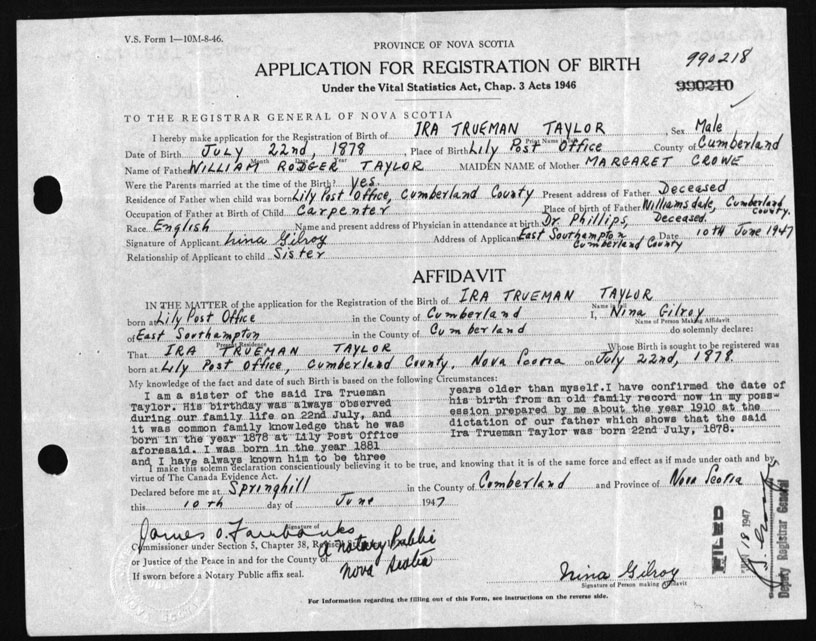 V.S. Form 1—10M-8-46.
PROVINCE OF NOVA SCOTIA
990218
APPLICATION FOR REGISTRATION OF BIRTH
990210
Under the Vital Statistics Act, Chap. 3 Acts 1946
TO THE REGISTRAR GENERAL OF NOVA SCOTIA
I hereby make application for the Registration of Birth of IRA TRUEMAN TAYLOR, Sex Male
Print Name in Full
Date of Birth JULY 22nd, 1878, Place of Birth Lily Post Office County of Cumberland
Month Date Year
Name of Father WILLIAM RODGER TAYLOR MAIDEN NAME of Mother MARGARET CROWE
Were the Parents married at the time of the Birth? yes.
Residence of Father when child was born Lily Post Office, Cumberland County Present address of Father Deceased
Occupation of Father at Birth of Child Carpenter Place of birth of Father Williamsdale, Cumberland County.
Race English Name and present address of Physician in attendance at birth Dr. Phillips, Deceased.
Signature of Applicant Nina Gilroy Address of Applicant East Southampton Cumberland County Date 10th June 1947
Relationship of Applicant to child Sister
AFFIDAVIT
IN THE MATTER of the application for the Registration of the Birth of IRA TRUEMAN TAYLOR
Name in full
born at Lily Post Office in the County of Cumberland I, Nina Gilroy
Name of Person Making Affidavit
of East Southampton in the County of Cumberland do solemnly declare:
Present Residence
That IRA TRUEMAN TAYLOR Whose Birth is sought to be registered was
born at Lily Post Office, Cumberland County, Nova Scotia on July 22nd, 1878.
My knowledge of the fact and date of such Birth is based on the following Circumstances:
I am a sister of the said Ira Trueman
Taylor. His birthday was always observed
during our family life on 22nd July, and
it was common family knowledge that he was
born in the year 1878 at Lily Post Office
aforesaid. I was born in the year 1881
and I have always known him to be three
years older than myself. I have confirmed the date of
his birth from an old family record now in my poss-
ession prepared by me about the year 1910 at the
dictation of our father which shows that the said
Ira Trueman Taylor was born 22nd July, 1878.
I make this solemn declaration conscientiously believing it to be true, and knowing that it is of the same force and effect as if made under oath and by
virtue of The Canada Evidence Act.
Declared before me at Springhill in the County of Cumberland and Province of Nova Scotia
this 10th day of June 1947
James O. Fairbanks
Signature of
Commissioner under Section 5, Chapter 38,
or Justice of the Peace in and for the County of
A notary Public
Nova Scotia
If sworn before a Notary Public affix seal.
Nina Gilroy
Signature of Person making Affidavit
FILED
JUN 18 1947
Deputy Registrar General
For Information regarding the filling out of this Form, see instructions on the reverse side.